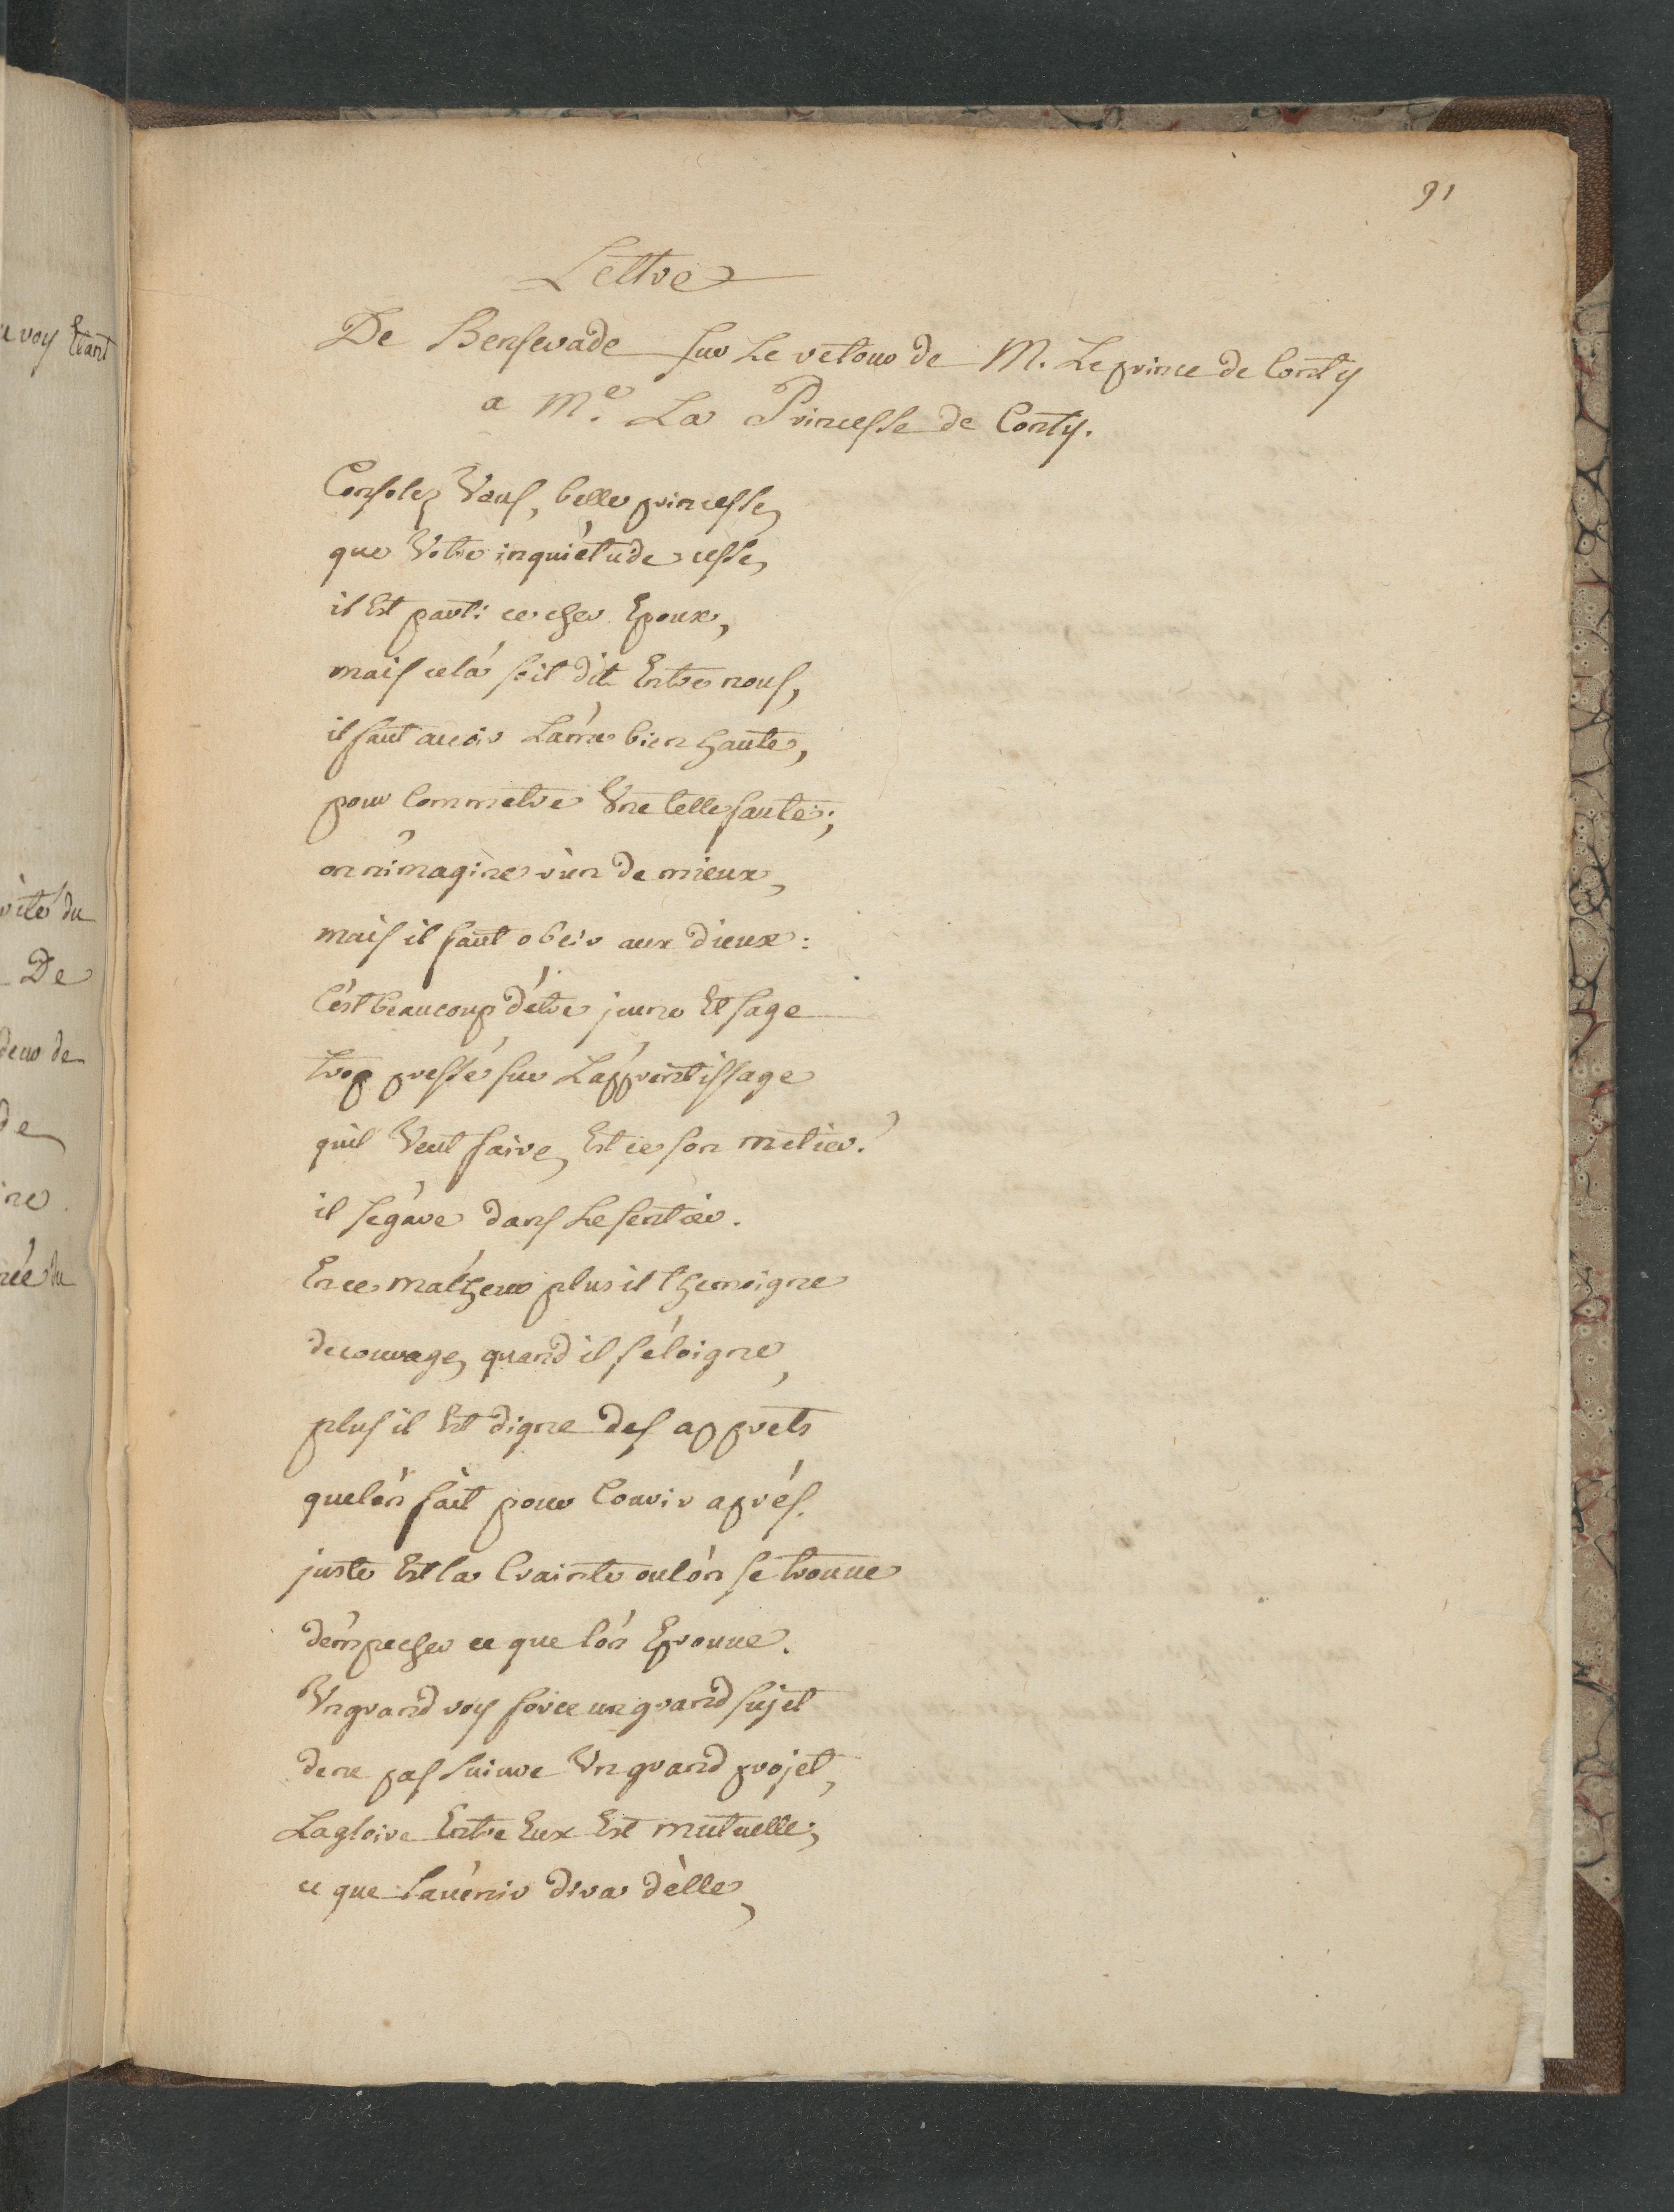 91
Lettre
De Benserade sur Le retour de M. Le prince de Conty
a Me. La Princesse de Conty.
Consolez Vous, belle princesse,
que Votre inquiétude cesse,
il Est parti ce cher Epoux,
mais celà soit dit Entre nous,
il faut auoir L'ame bien haute,
pour Commetre Une telle faute;
on n'imagine rien de mieux,
mais il faut obeir aux dieux:
C'est beaucoup d'être jeune Et sage
trop pressé sur L'apprentissage
quil Veut faire, Est ce son metier?
il s'egare dans Le sentier.
En ce malheur plus il themoigne
de courage, quand il s'éloigne,
plus il Est digne des apprets
que l'on fait pour Courir aprés.
juste Est la Crainte ou l'on se trouue
d'empecher ce que l'on Eprouue.
Un grand roy force un grand sujet
de ne pas suiure Un grand projet,
La gloire Entre Eux Est mutuelle;
ce que l'auenir dira d'elle,
e roy Etant
rite du
De
deur de
de
ne
née du